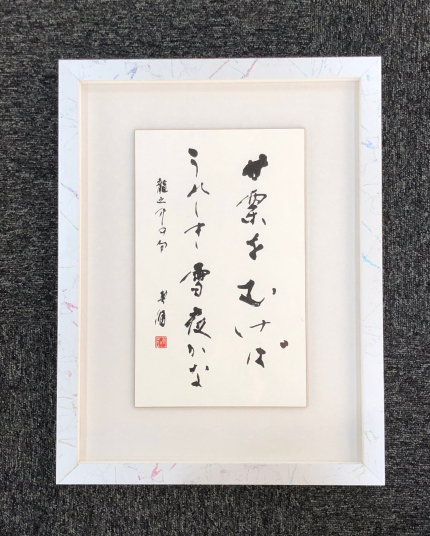 甘栗をむけば
うれしき雪夜かな
龍之介の句